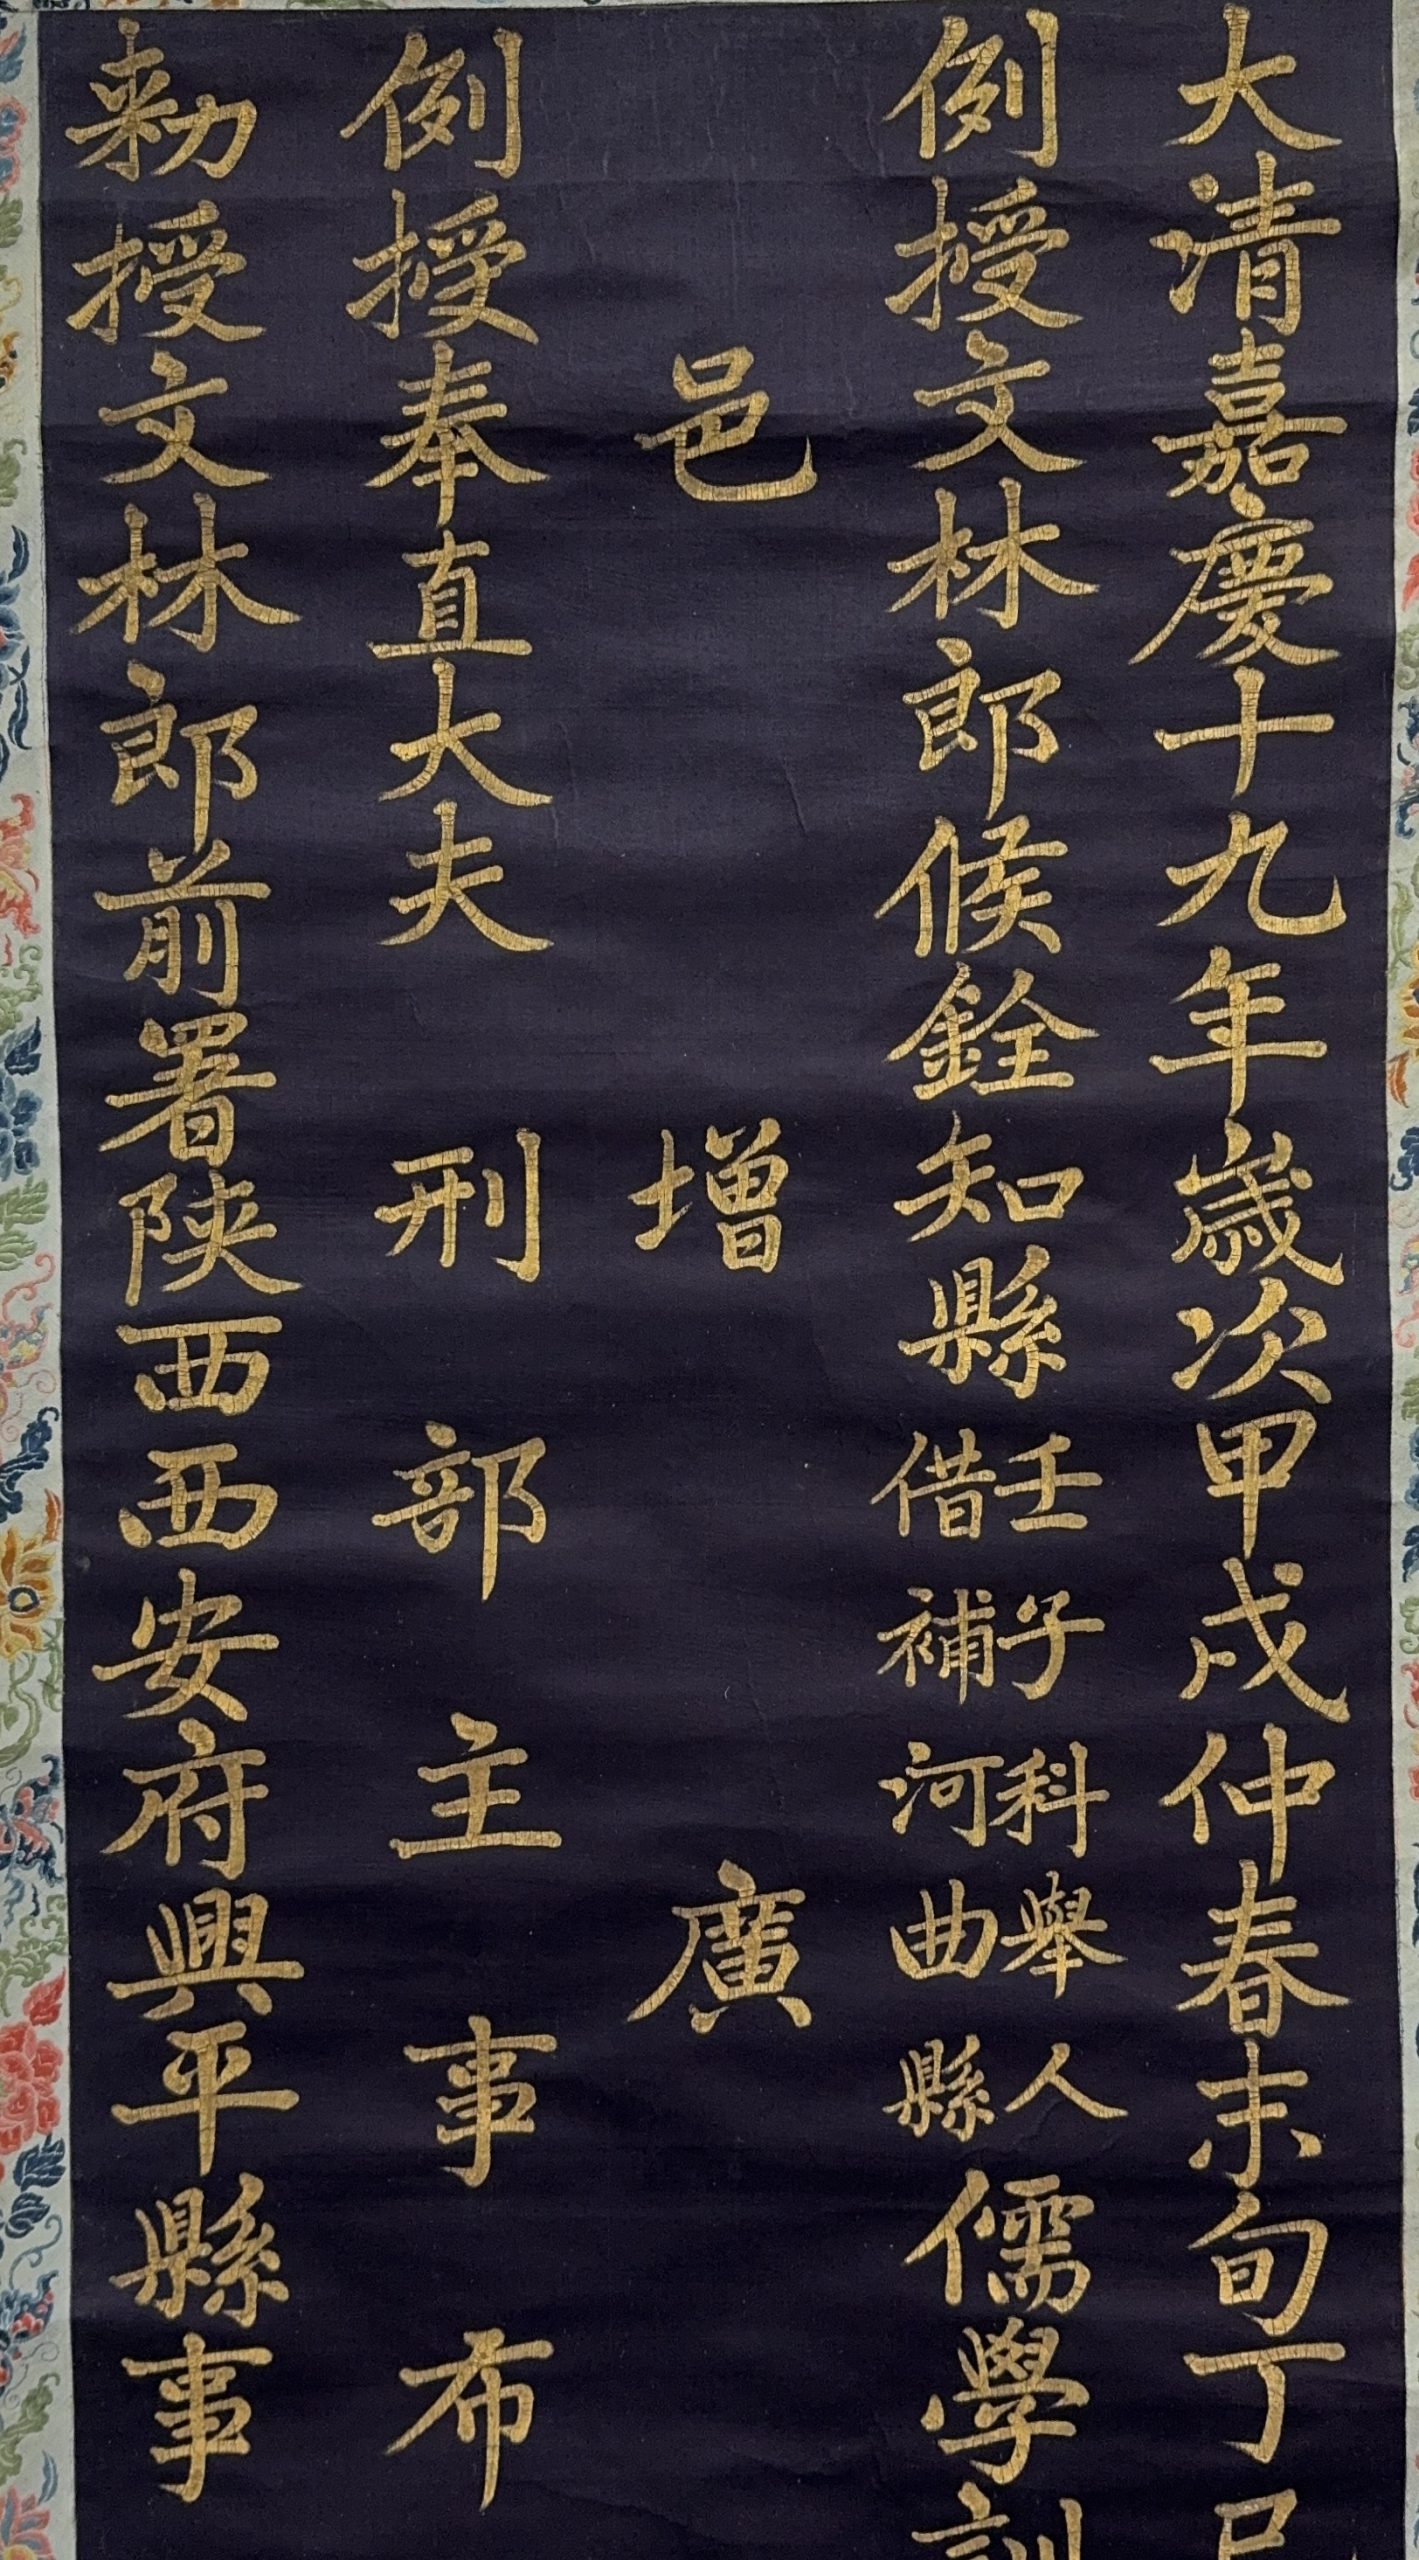 大清嘉慶十九年歲次甲戌仲春末旬丁
例授文林郎候銓知縣壬子科舉人借補河曲縣儒學訓
邑增廣
例授奉直大夫刑部主事布
勅授文林郎前署陝西西安府興平縣事